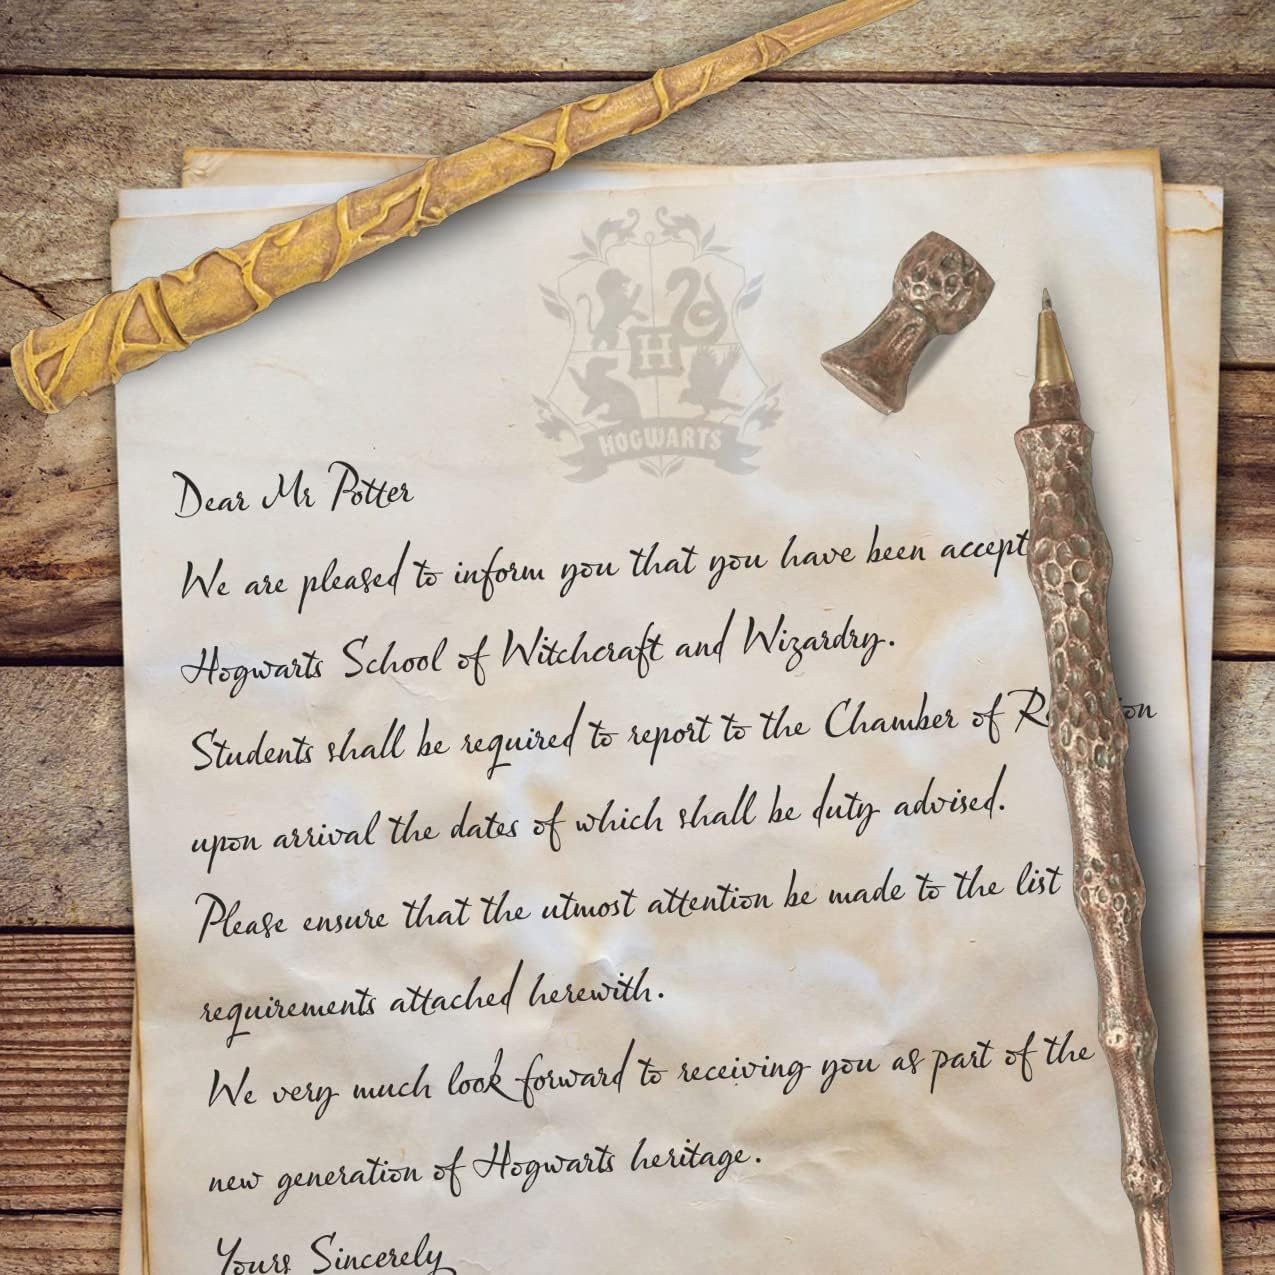 HOGWARTS
H
Dear Mr Potter
We are pleased to inform you that you have been accept
Hogwarts School of Witchcraft and Wizardry.
Students shall be required to report to the Chamber of
upon arrival the dates of which shall be duty advised.
Please ensure that the utmost attention be made to the list
requirements attached herewith.
We very much look forward to receiving you as part of the
new generation of Hogwarts heritage.
Yours Sincerely